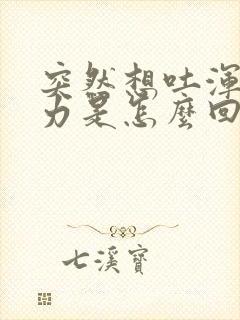 突然想吐渾
力是怎麼回
七溪寶